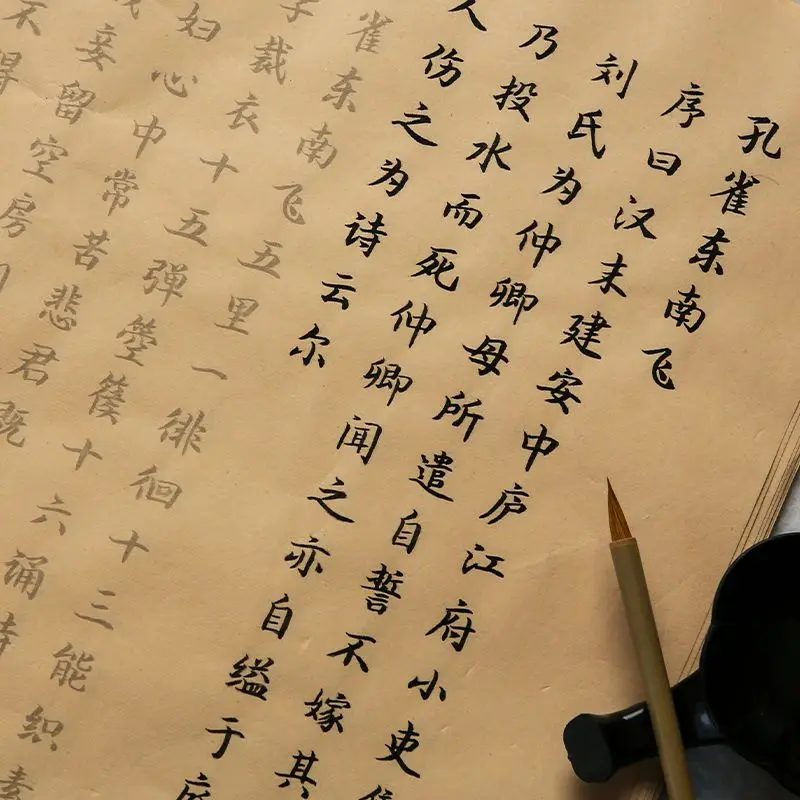 孔雀东南飞
序曰汉末建安中庐江府小吏
刘氏为仲卿母所遣自誓不嫁其
乃投水而死仲卿闻之亦自缢于庭
人伤之为诗云尔
雀东南飞五里一徘徊十三能织素
学裁衣十五彈箜篌十六诵诗
妇心中常苦悲君既
妾留空房
不得